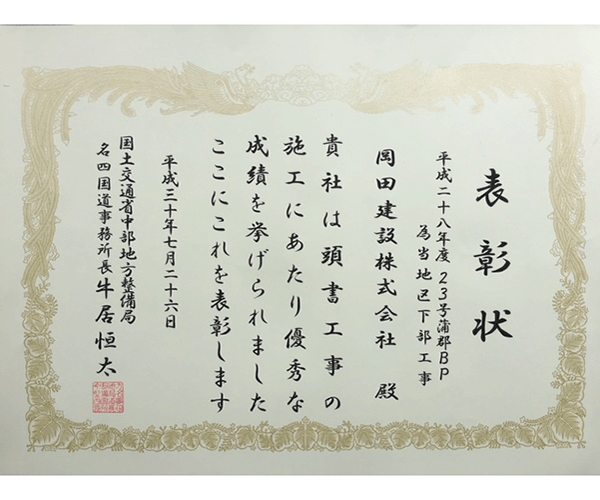 表彰状
平成二十八年度 23号蒲郡BP
為当地区下部工事
岡田建設株式会社 殿
貴社は頭書工事の
施工にあたり優秀な
成績を挙げられました
ここにこれを表彰します
平成三十年七月二十六日
国土交通省中部地方整備局
名四国道事務所長 牛居恒太